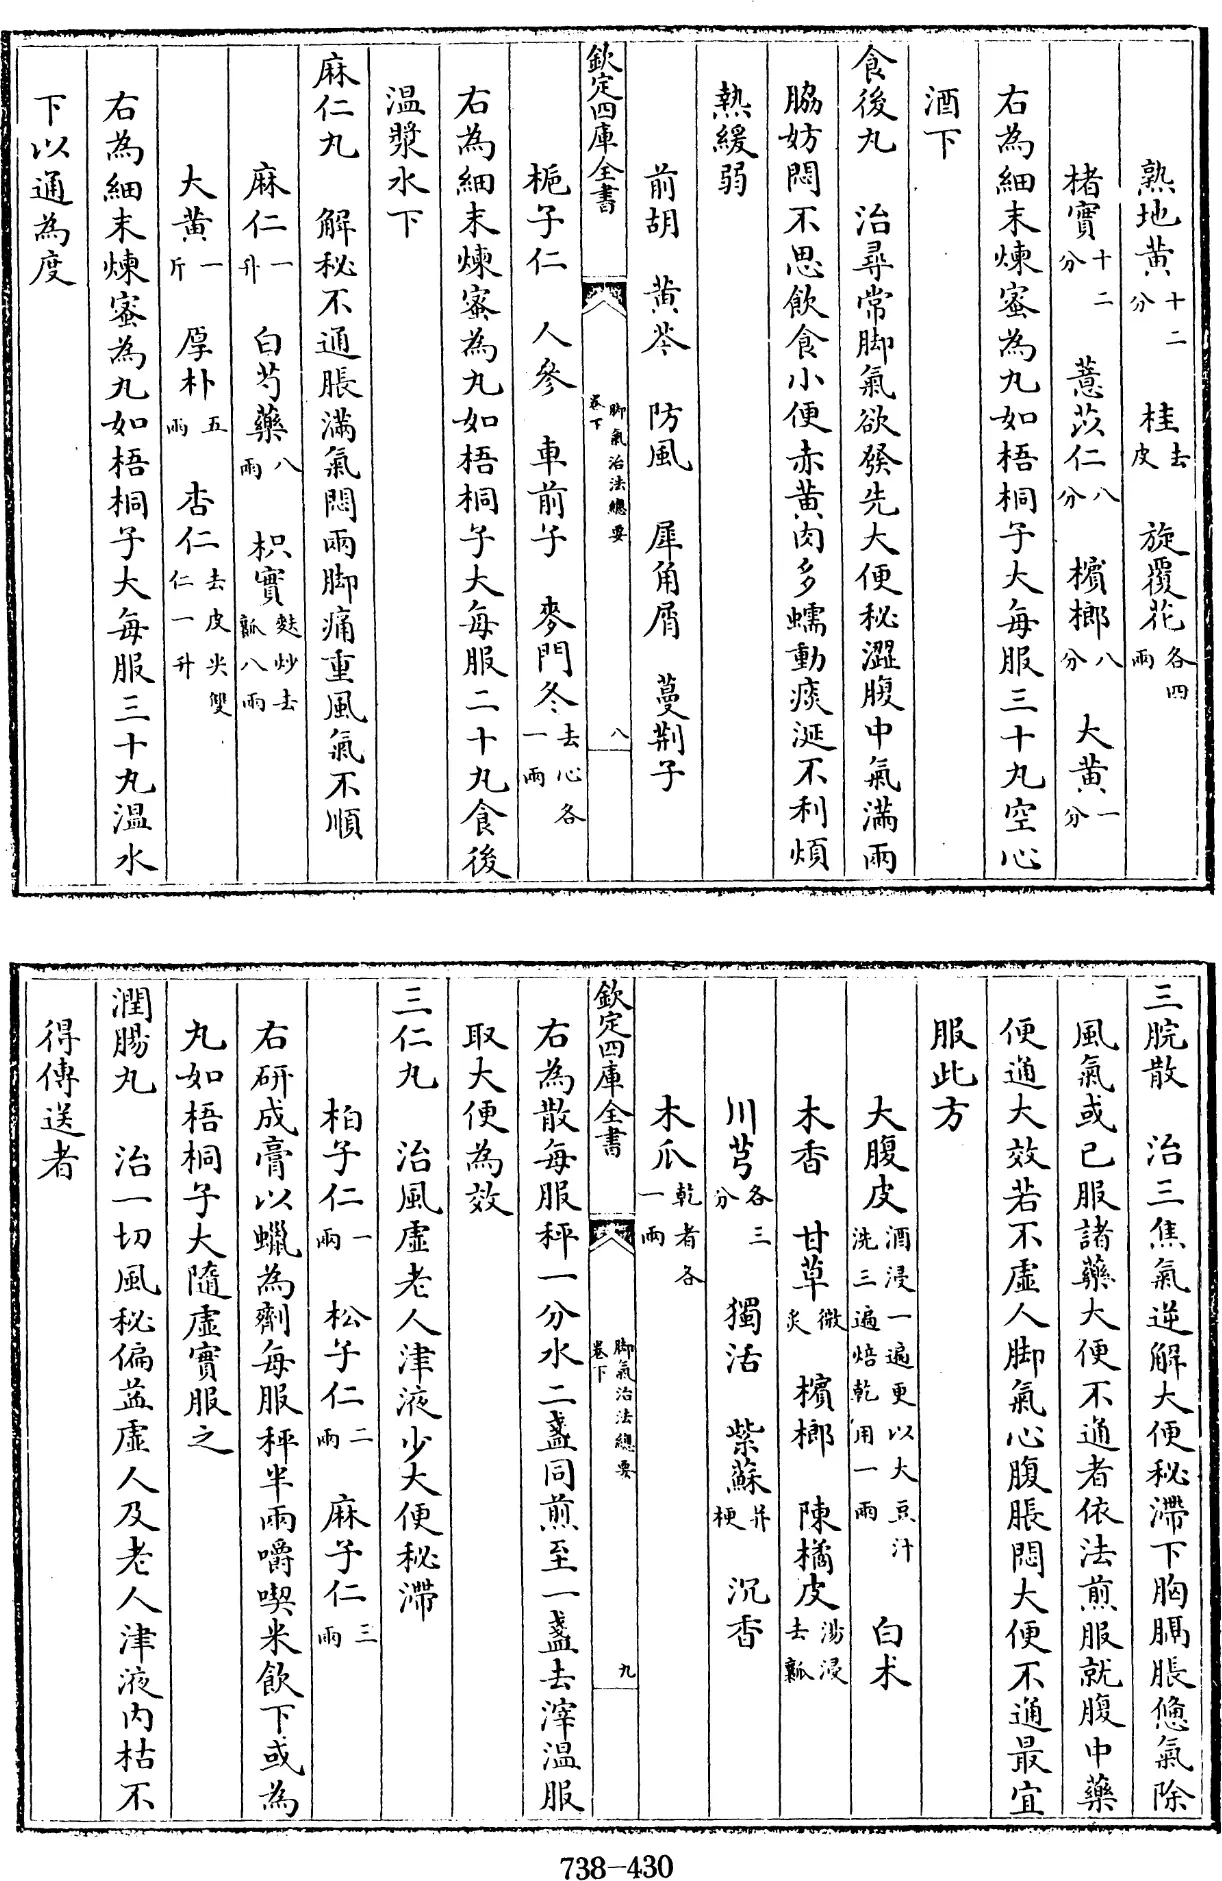 熟地黄十二分　桂去皮　旋覆花各四兩
楮實十二分　薏苡仁八分　檳榔八分　大黄一分
右為細末煉蜜為丸如梧桐子大每服三十丸空心
酒下
食後丸　治尋常脚氣欲發先大便秘澀腹中氣滿兩
脇妨悶不思飲食小便赤黄肉多蠕動痰涎不利煩
熱緩弱
前胡　黄芩　防風　犀角屑　蔓荆子
欽定四庫全書　脚氣治法總要　卷下　八
梔子仁　人參　車前子　麥門冬去心各一兩
右為細末煉蜜為丸如梧桐子大每服二十丸食後
温漿水下
麻仁丸　解秘不通脹滿氣悶兩脚痛重風氣不順
麻仁一升　白芍藥八兩　枳實麩炒去瓤八兩
大黄一斤　厚朴五兩　杏仁去皮尖雙仁一升
右為細末煉蜜為丸如梧桐子大每服三十丸温水
下以通為度
三脘散　治三焦氣逆解大便秘滯下胸膈脹憊氣除
風氣或已服諸藥大便不通者依法煎服就腹中藥
便通大效若不虛人脚氣心腹脹悶大便不通最宜
服此方
大腹皮酒浸一遍更以大豆汁洗三遍焙乾用一兩　白术
木香　甘草微炙　檳榔　陳橘皮湯浸去瓤
川芎各三分　獨活　紫蘇并梗　沉香
木瓜乾者各一兩
欽定四庫全書　脚氣治法總要　卷下　九
右為散每服秤一分水二盞同煎至一盞去滓温服
取大便為效
三仁丸　治風虛老人津液少大便秘滯
柏子仁一兩　松子仁二兩　麻子仁三兩
右研成膏以蠟為劑每服秤半兩嚼喫米飲下或為
丸如梧桐子大隨虛實服之
潤腸丸　治一切風秘偏益虛人及老人津液内枯不
得傳送者
738-430